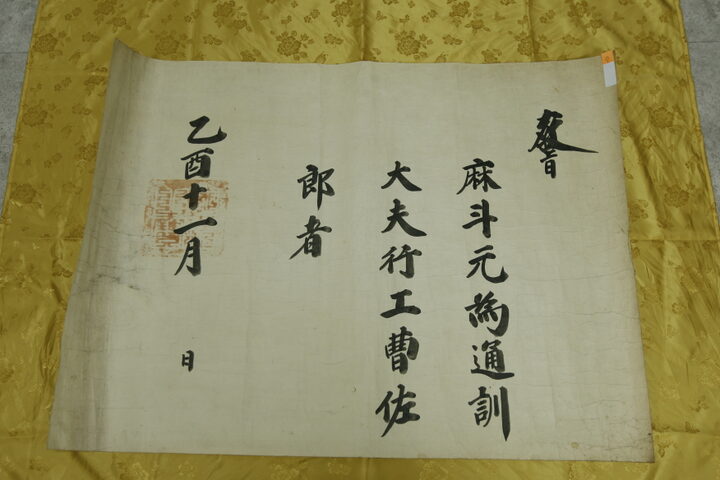 敎旨
麻斗元為通訓
大夫行工曹佐
郎者
乙酉十一月 日